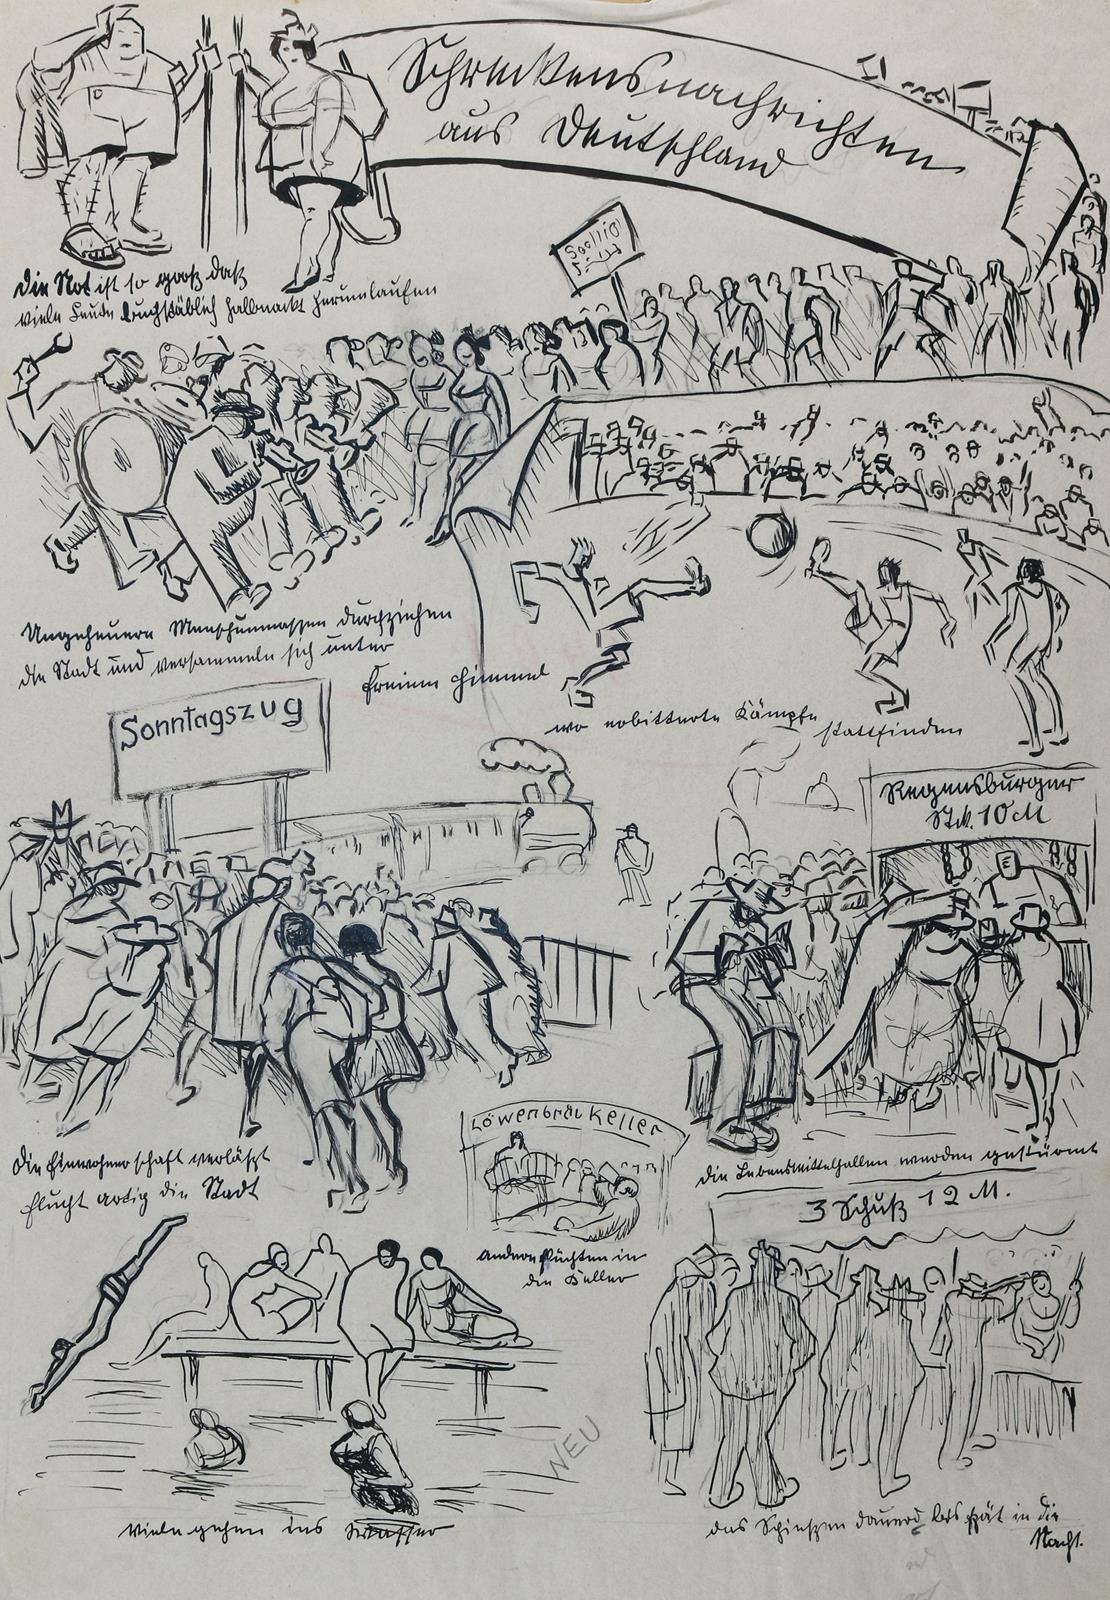 Schreckensnachrichten
aus Deutschland
Die Not ist so groß daß
viele Leute buchstäblich halbnackt herumlaufen
Ungeheuere Menschenmassen durchziehen
die Stadt und versammeln sich unter
freiem Himmel
wo erbitterte Kämpfe stattfinden
Sonntagszug
Regensburger
Stk. 10 M
Die Einwohnerschaft verläßt
fluchtartig die Stadt
Löwenbräukeller
andere flüchten in
die Keller
die Lebensmittelhallen werden gestürmt
3 Schuß 12 M.
NEU
Viele gehen ins Wasser
das Schießen dauerd bis spät in die
Nacht.